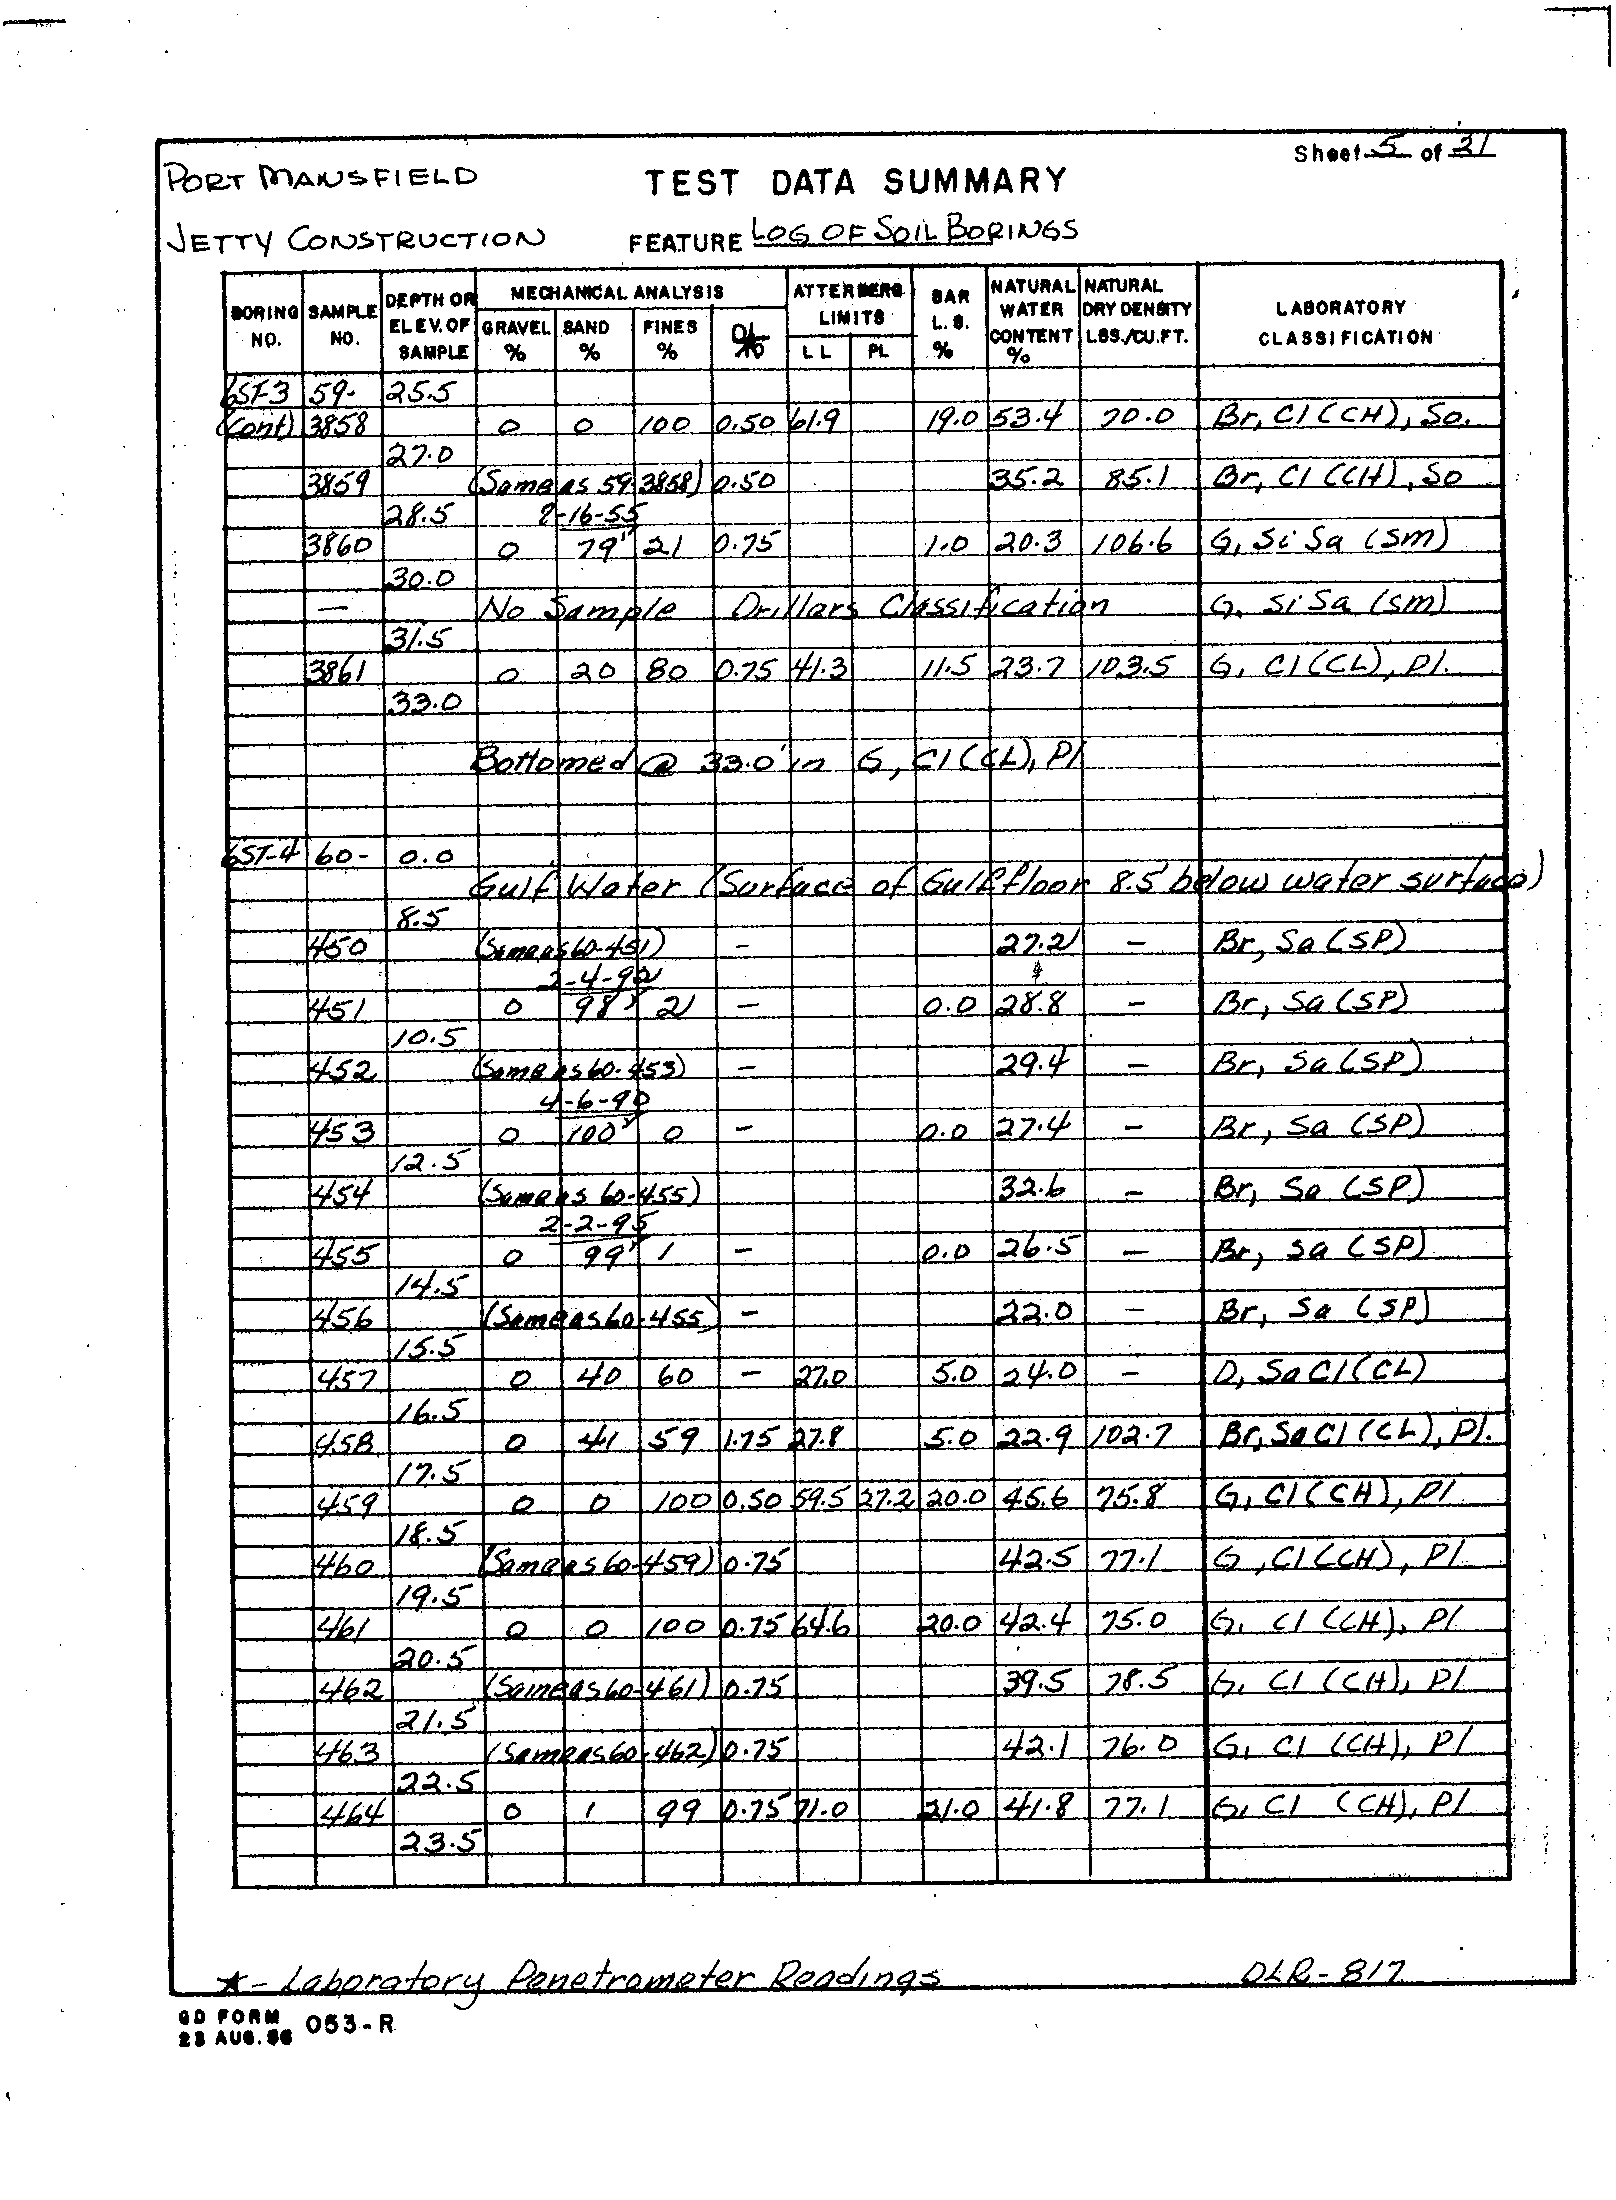 Sheet 5 of 21
PORT MANSFIELD
TEST DATA SUMMARY
JETTY CONSTRUCTION
FEATURE LOG OF SOIL BORINGS
BORING NO. SAMPLE NO. DEPTH OR ELEV. OF SAMPLE MECHANICAL ANALYSIS GRAVEL % SAND % FINES % ATTERBERG LIMITS LL PL BAR L.S. % NATURAL WATER CONTENT % NATURAL DRY DENSITY LBS./CU.FT. LABORATORY CLASSIFICATION
6ST-3 59- 25.5
(Cont) 3858 0 0 100 0.50 61.9 19.0 53.4 70.0 Br, Cl (CH), So.
27.0
3859 (Same as 59-3858) 0.50 35.2 85.1 Br, Cl (CH), So
28.5 8-16-55
3860 0 79 21 0.75 1.0 20.3 106.6 G, Si Sa (SM)
30.0
— No Sample Drillars Classification G, Si Sa (SM)
31.5
3861 0 20 80 0.75 41.3 11.5 23.7 103.5 G, Cl (CL), Pl.
33.0
Bottomed @ 33.0' in G, Cl (CL), Pl
6ST-4 60- 0.0
Gulf Water (Surface of Gulf floor 8.5' below water surface)
8.5
450 (Same as 60-451) - 27.2 - Br, Sa (SP)
2-4-92
451 0 98 2 - 0.0 28.8 - Br, Sa (SP)
10.5
452 (Same as 60-453) - 29.4 - Br, Sa (SP)
4-6-90
453 0 100 0 - 0.0 27.4 - Br, Sa (SP)
12.5
454 (Same as 60-455) 32.6 - Br, Sa (SP)
2-2-95
455 0 99 1 - 0.0 26.5 - Br, Sa (SP)
14.5
456 (Same as 60-455) - 22.0 - Br, Sa (SP)
15.5
457 0 40 60 - 27.0 5.0 24.0 - D, Sa Cl (CL)
16.5
458 0 41 59 1.75 27.8 5.0 22.9 102.7 Br, Sa Cl (CL), Pl.
17.5
459 0 0 100 0.50 59.5 27.2 20.0 45.6 75.8 G, Cl (CH), Pl
18.5
460 (Same as 60-459) 0.75 42.5 77.1 G, Cl (CH), Pl
19.5
461 0 0 100 0.75 64.6 20.0 42.4 75.0 G, Cl (CH), Pl
20.5
462 (Same as 60-461) 0.75 39.5 78.5 G, Cl (CH), Pl
21.5
463 (Same as 60-462) 0.75 42.1 76.0 G, Cl (CH), Pl
22.5
464 0 1 99 0.75 71.0 21.0 41.8 77.1 G, Cl (CH), Pl
23.5
★- Laboratory Penetrometer Readings DLR-817
GD FORM 053-R
23 AUG. 56